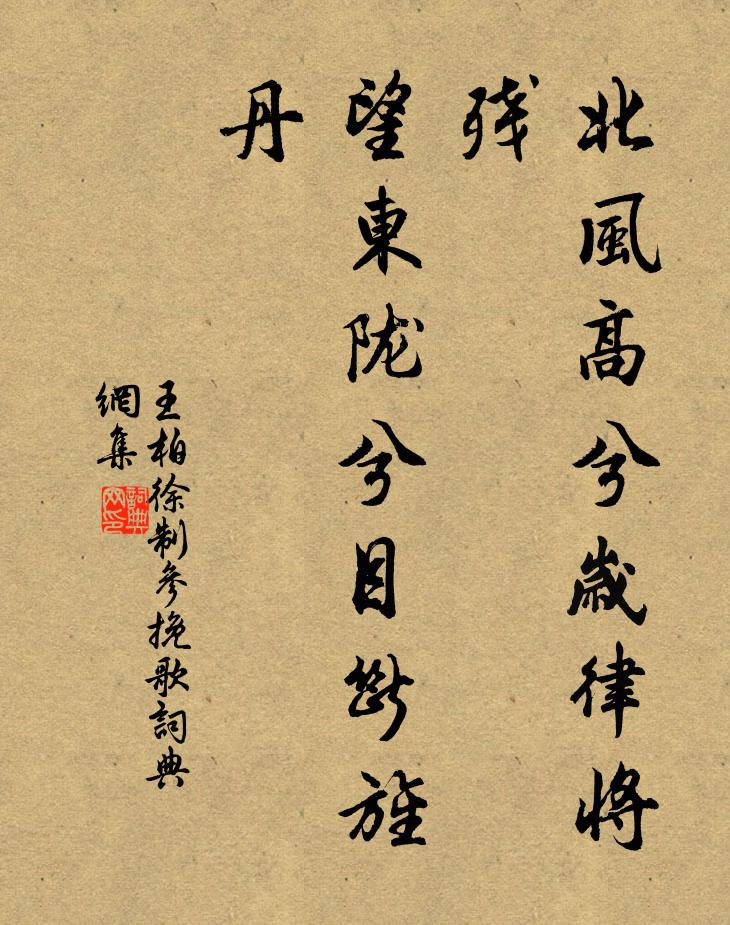 北風高兮歲律將
殘
望東陇兮目斷旌
丹
王柏徐制參挽歌詞典
網集
詞典
网印